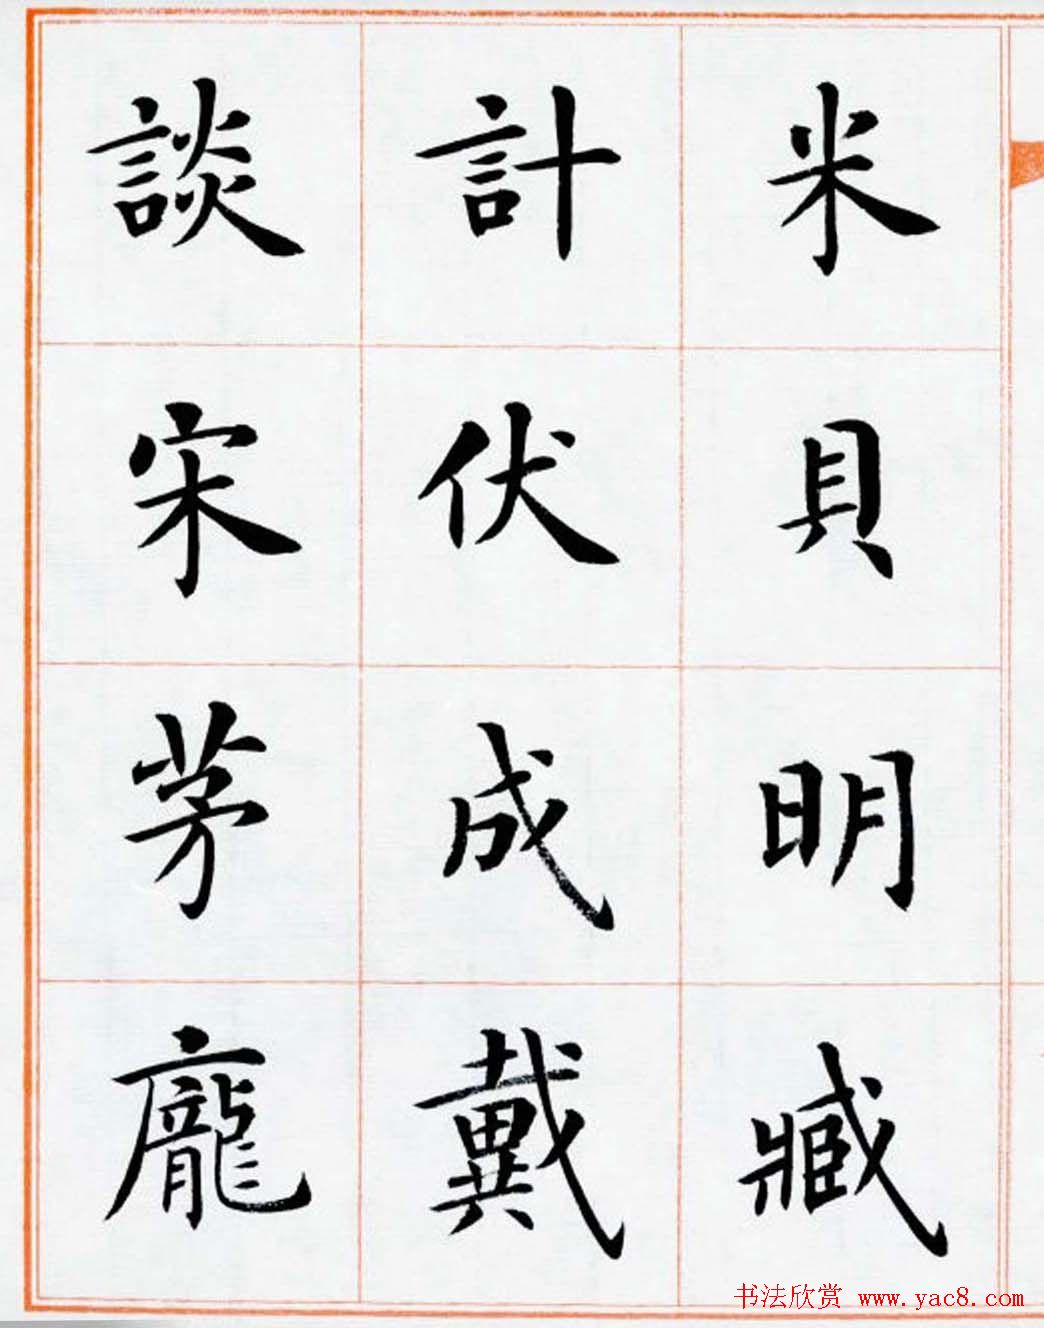 米貝明臧
計伏成戴
談宋茅龐
书法欣赏 www.yac8.com